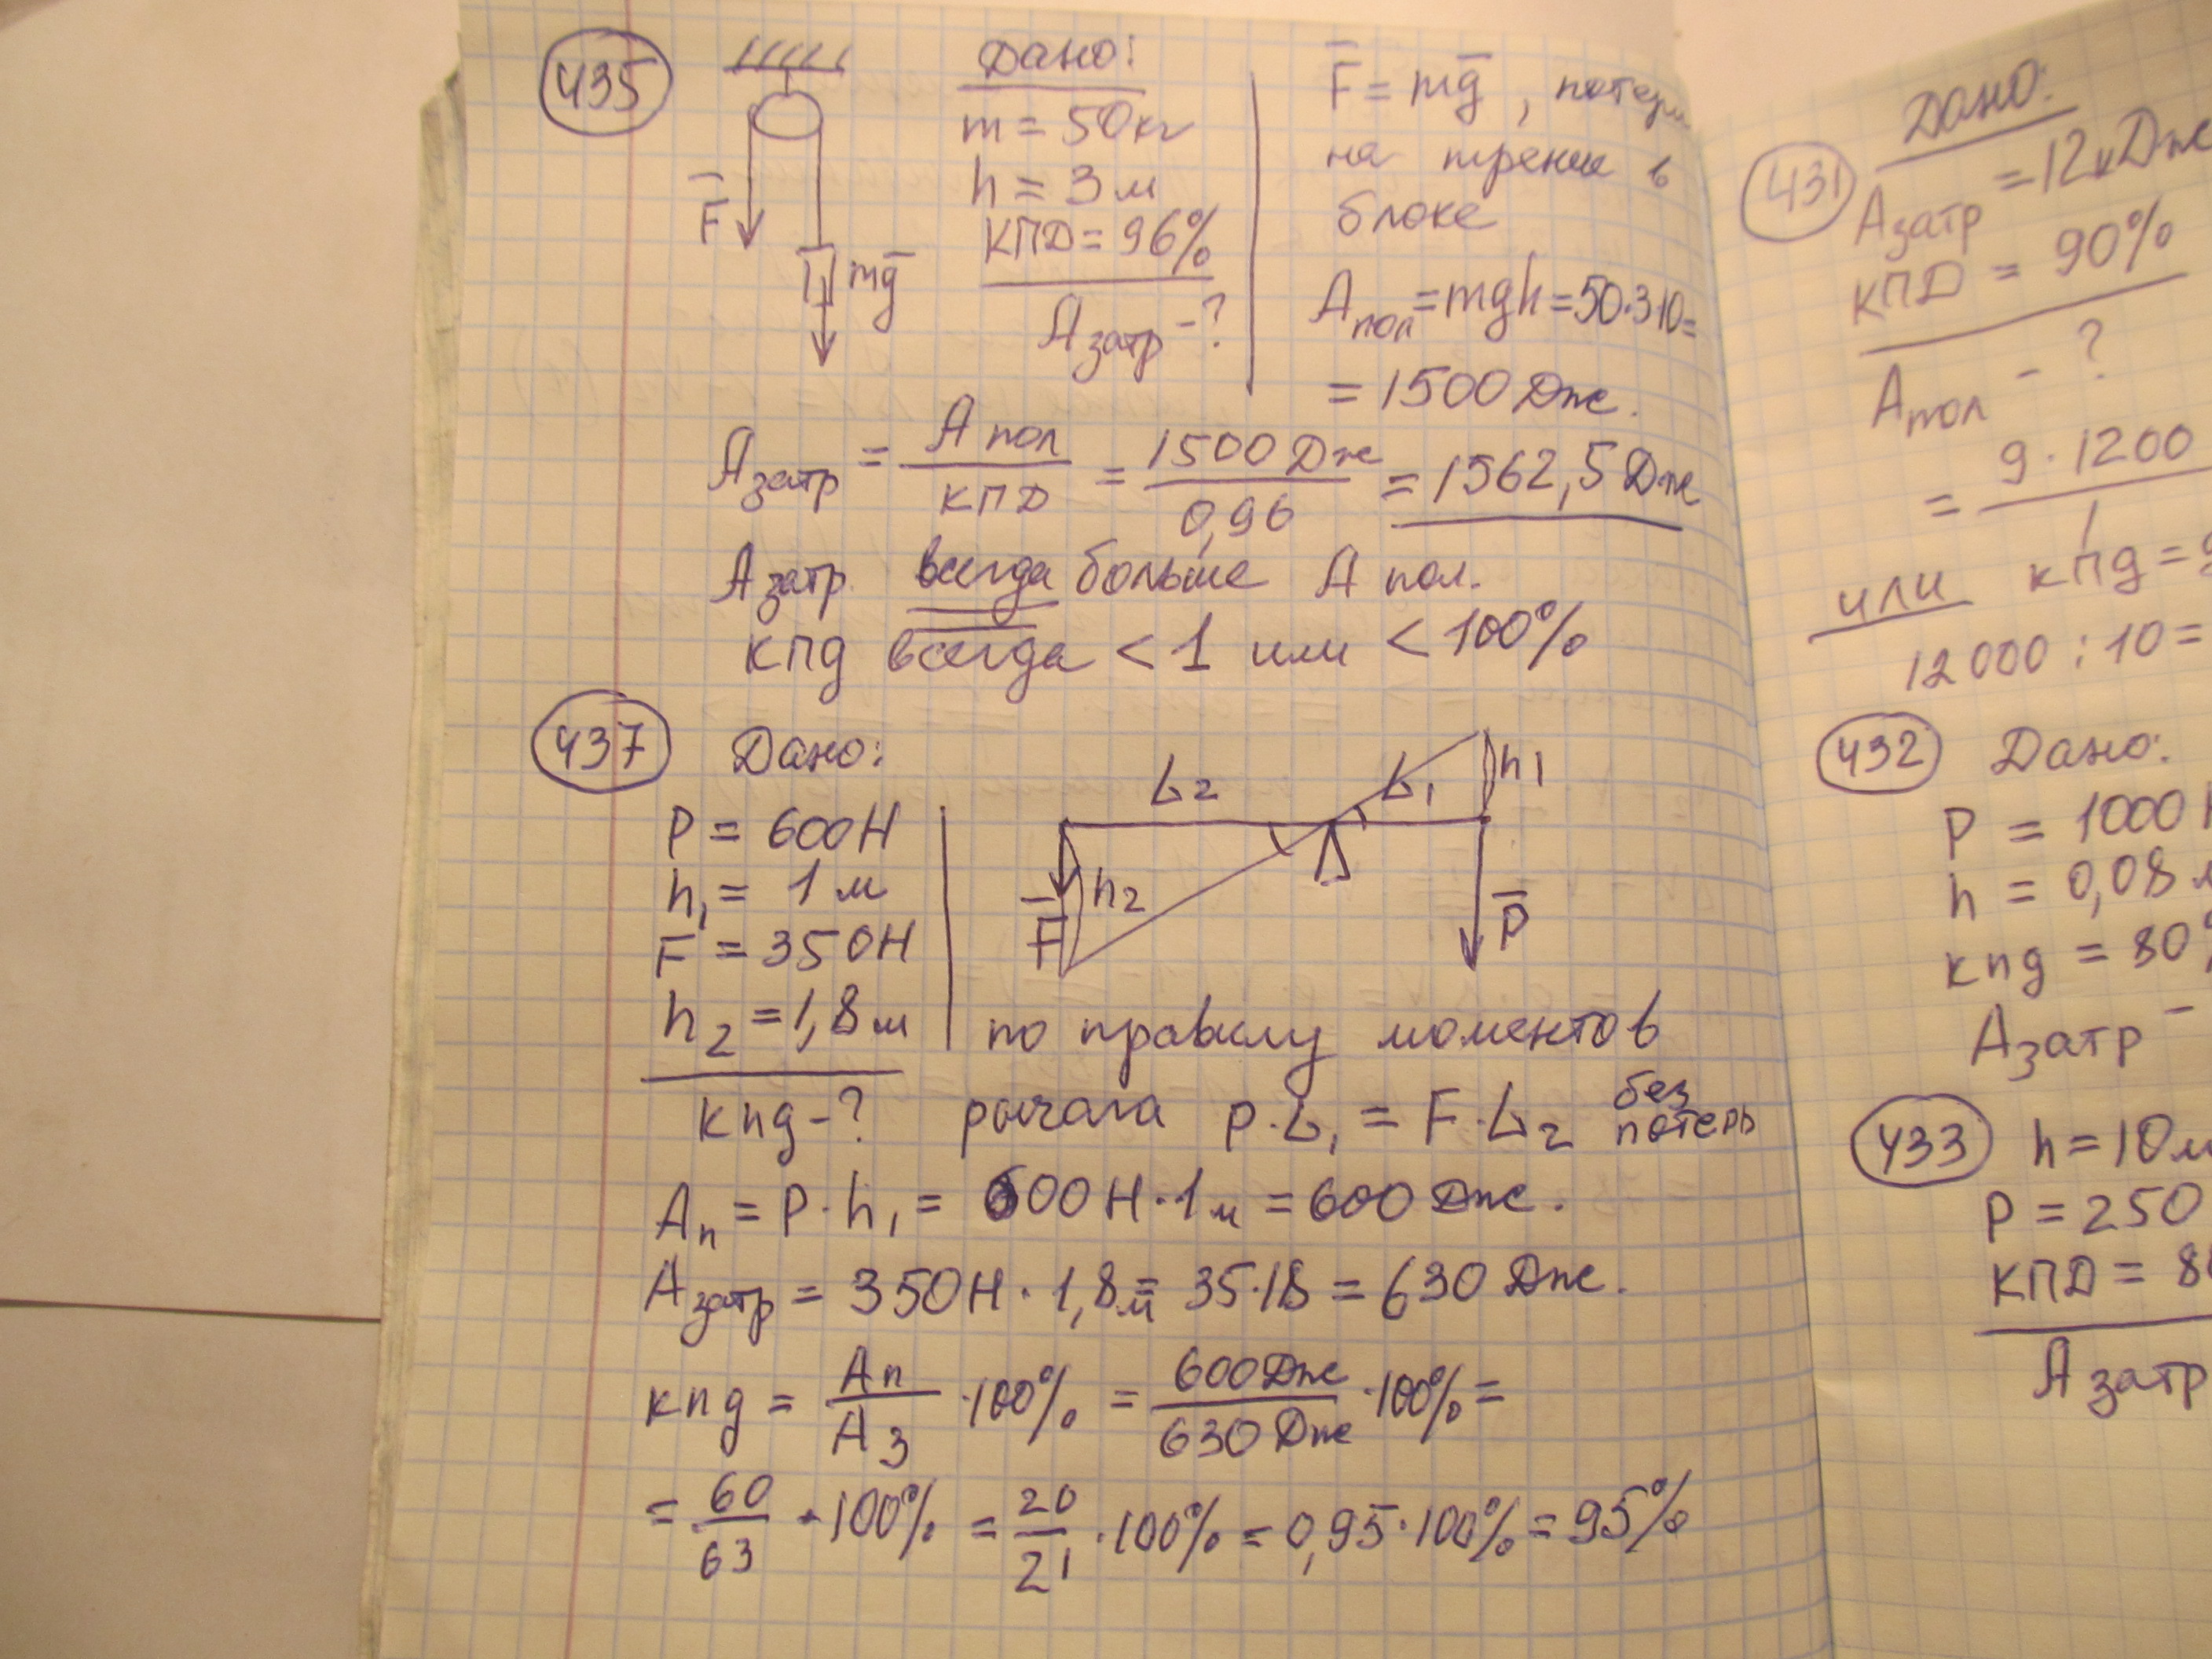 435
Дано:
m = 50кг
h = 3 м
КПД = 96%
Aзатр - ?
F
mg
F = mg , потери
на трение в
блоке
Aпол = mgh = 50·3·10 =
= 1500 Дж.
Aзатр = A пол / КПД = 1500 Дж / 0,96 = 1562,5 Дж
Aзатр всегда больше A пол.
кпд всегда < 1 или < 100%
437 Дано:
P = 600Н
h₁ = 1 м
F = 350Н
h₂ = 1,8 м
кпд - ?
L₂ L₁ h₁
h₂
F P
по правилу моментов
рычага P·L₁ = F·L₂ без потерь
Aп = P·h₁ = 600 Н·1м = 600 Дж.
Aзатр = 350Н · 1,8м = 35·18 = 630 Дж.
кпд = Aп / Aз ·100% = 600Дж / 630 Дж ·100% =
= 60 / 63 · 100% = 20 / 21 ·100% = 0,95·100% = 95%
431 Дано:
Aзатр = 12кДж
КПД = 90%
Aпол - ?
= 9·1200 / 1
или кпд =
12000 : 10 =
432 Дано:
P = 1000
h = 0,08
кпд = 80
Aзатр -
433 h = 10м
P = 250
КПД =
Aзатр